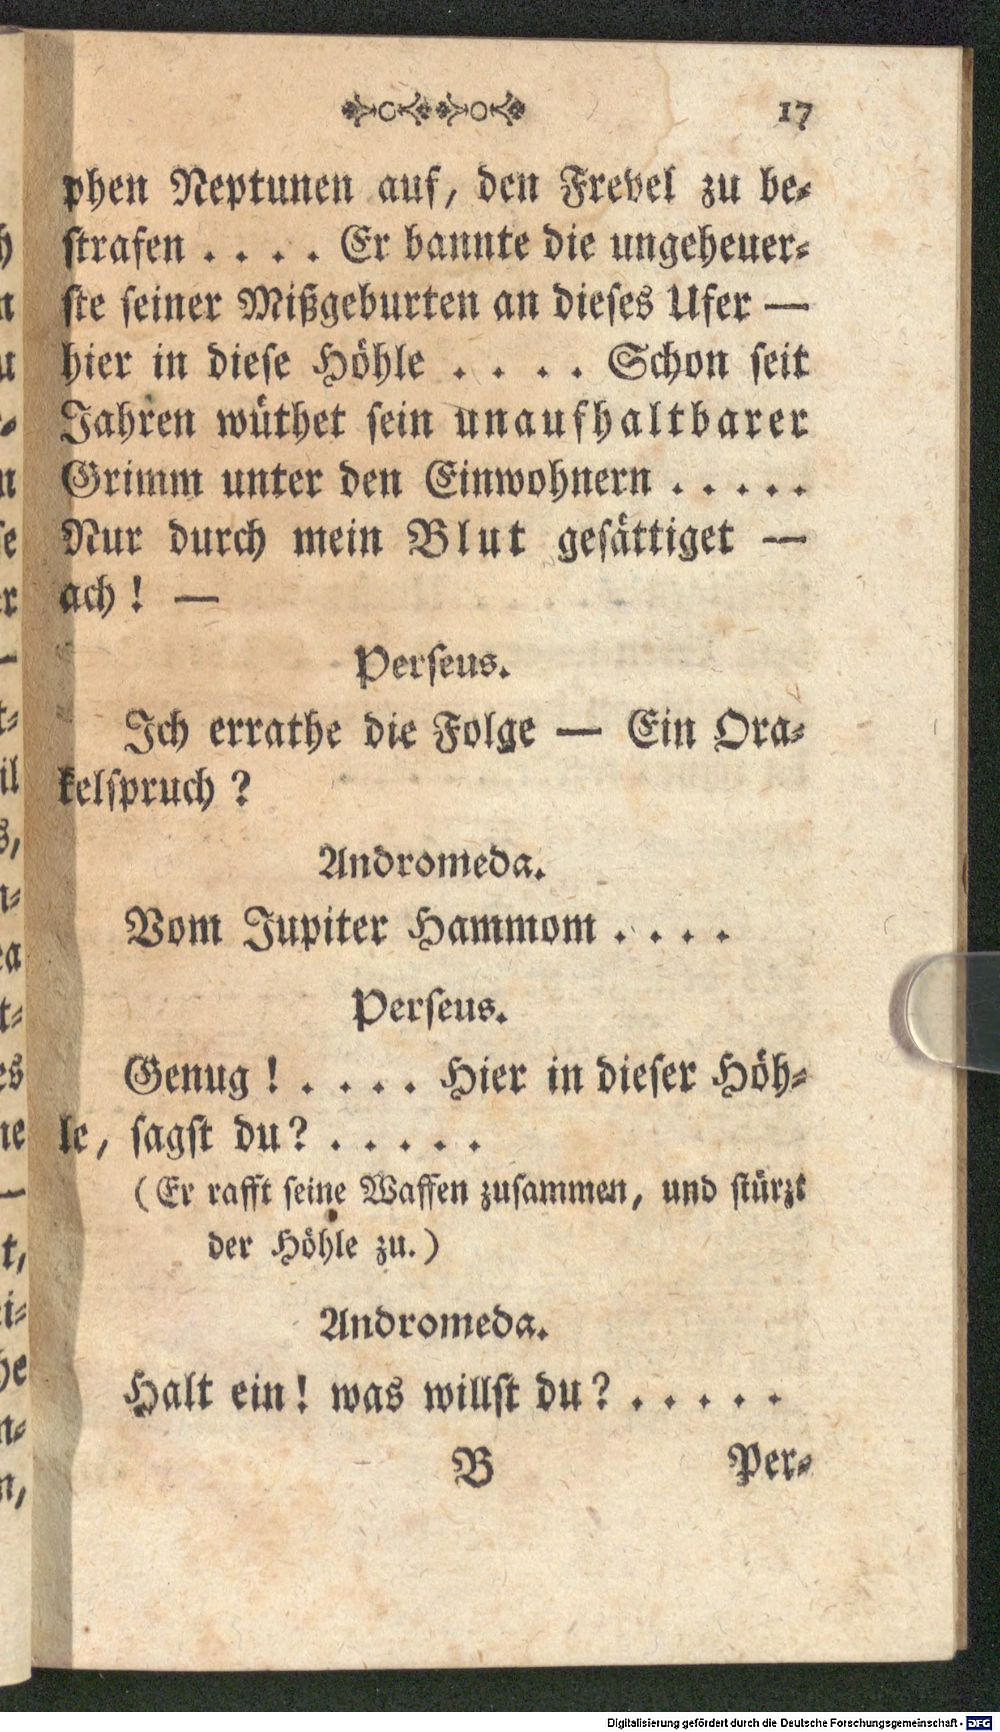 17
phen Neptunen auf, den Frevel zu be-
strafen . . . . Er bannte die ungeheuer-
ste seiner Mißgeburten an dieses Ufer —
hier in diese Höhle . . . . Schon seit
Jahren wüthet sein unaufhaltbarer
Grimm unter den Einwohnern . . . . .
Nur durch mein Blut gesättiget —
ach! —
Perseus.
Ich errathe die Folge — Ein Ora-
kelspruch?
Andromeda.
Vom Jupiter Hammom . . . .
Perseus.
Genug! . . . . Hier in dieser Höh-
le, sagst du? . . . . .
(Er rafft seine Waffen zusammen, und stürzt
der Höhle zu.)
Andromeda.
Halt ein! was willst du? . . . . .
B Per-
Digitalisierung gefördert durch die Deutsche Forschungsgemeinschaft - DFG